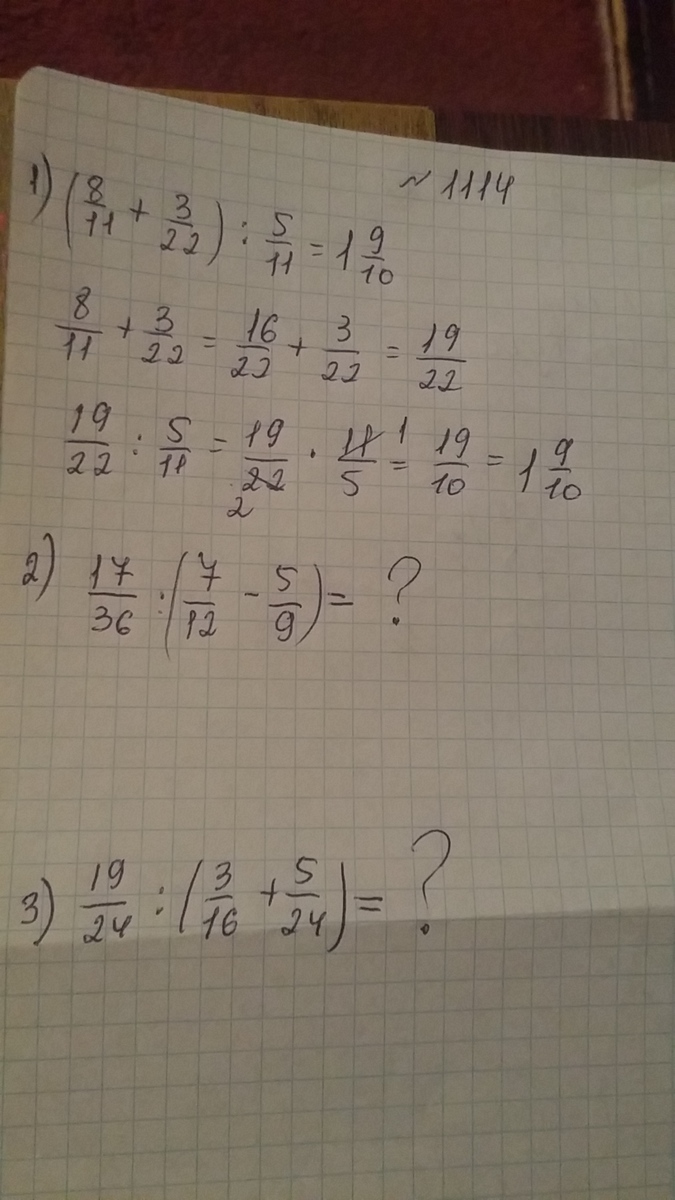 № 1114
1) (8/11 + 3/22) : 5/11 = 1 9/10
8/11 + 3/22 = 16/22 + 3/22 = 19/22
19/22 : 5/11 = 19/22 2 · 11/5 1 = 19/10 = 1 9/10
2) 17/36 : (7/12 - 5/9) = ?
3) 19/24 : (3/16 + 5/24) = ?